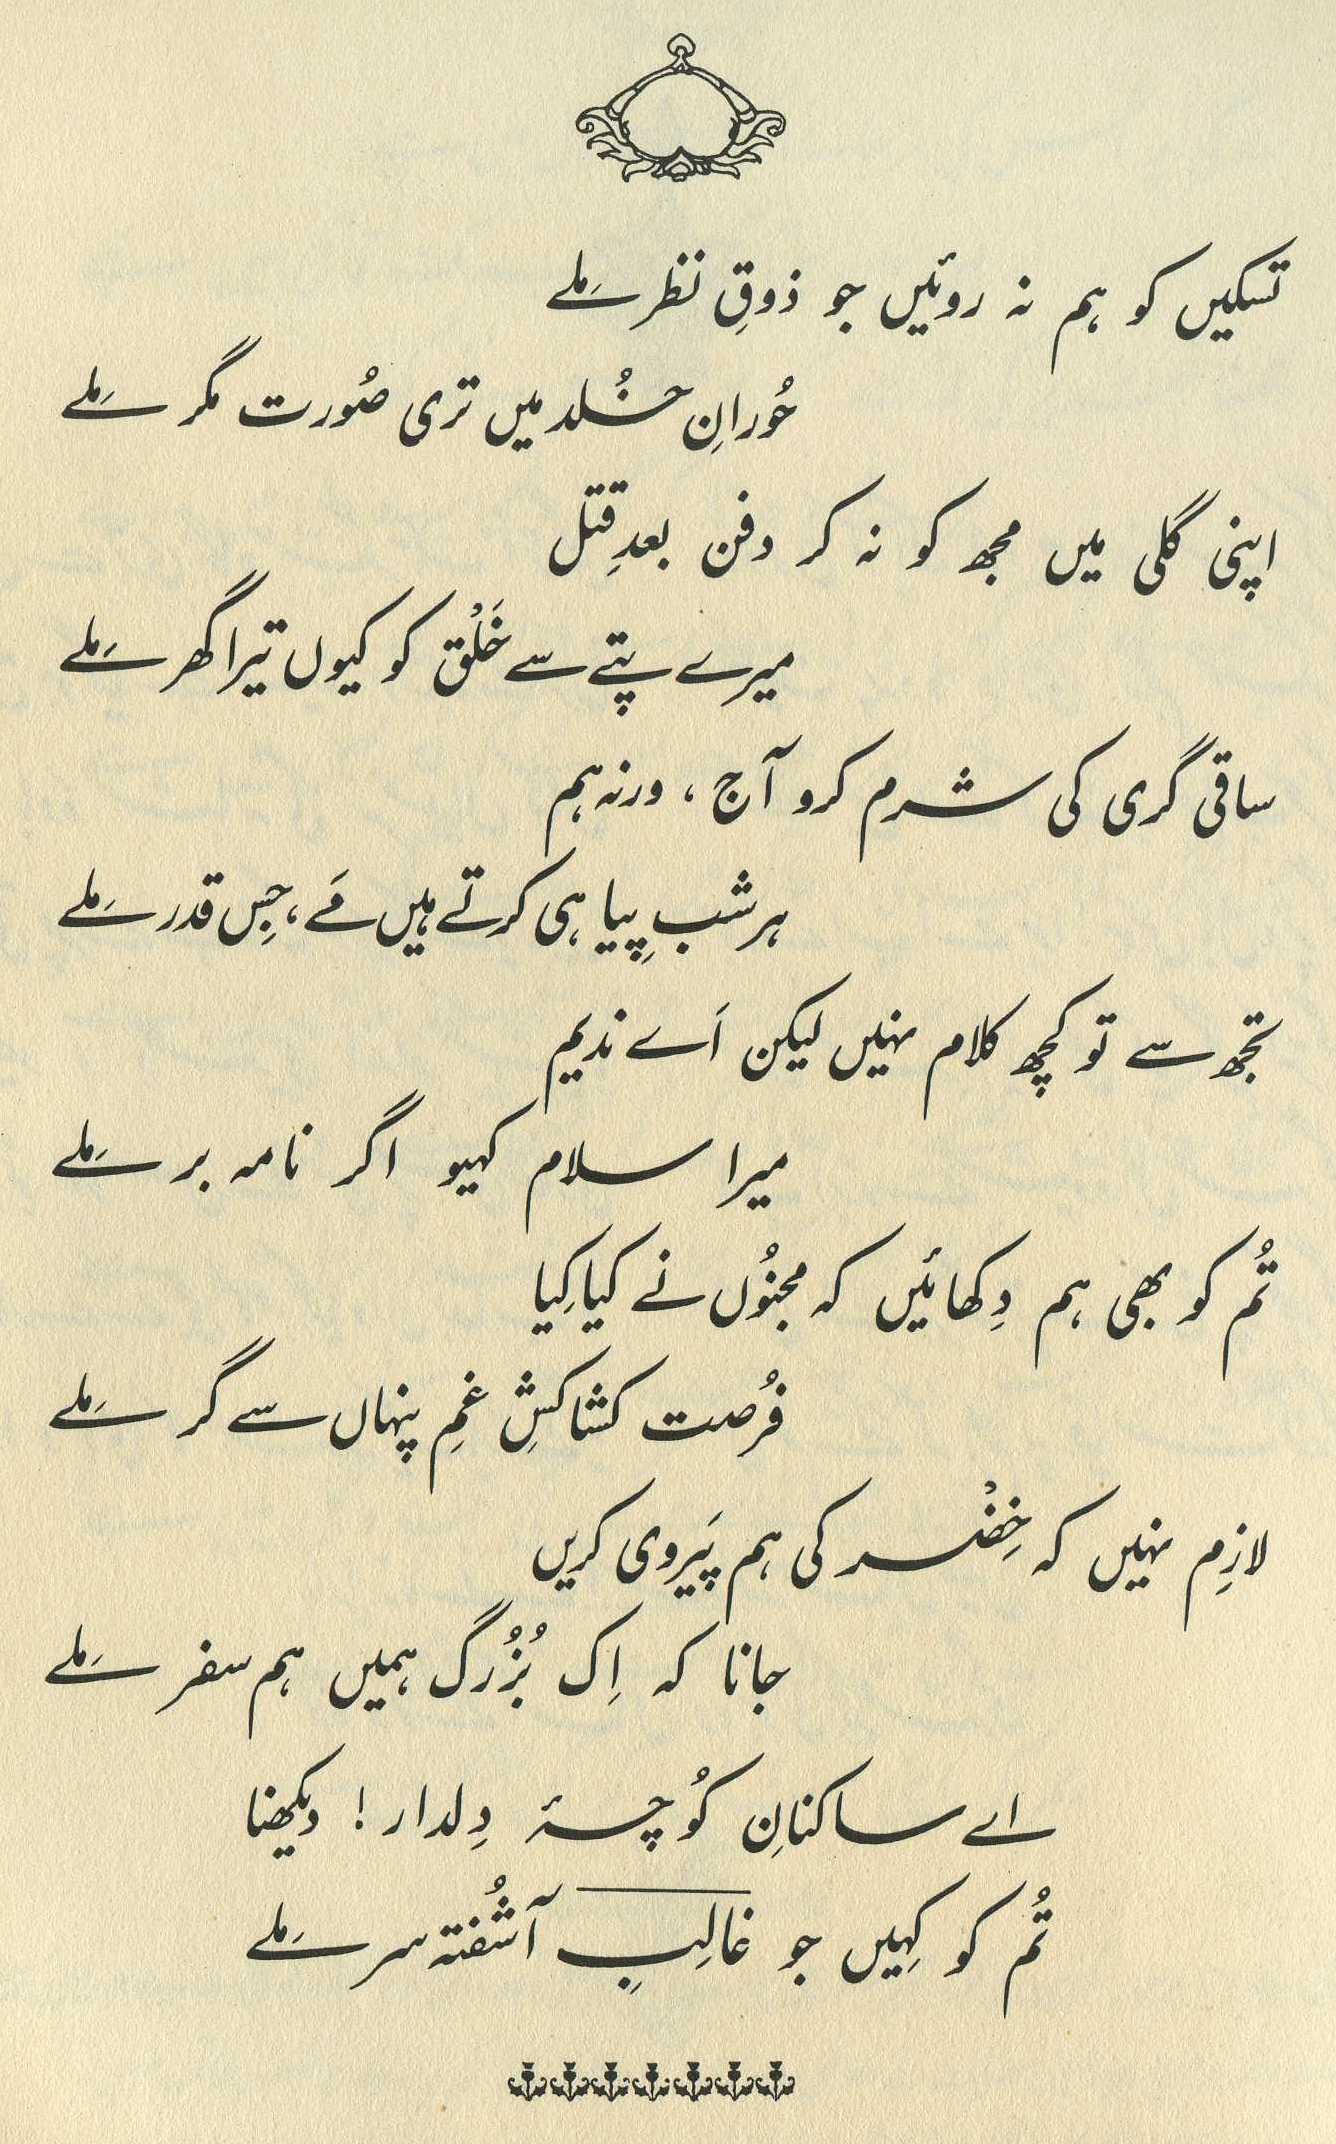 تسکیں کو ہم نہ روئیں جو ذوقِ نظر مِلے
حُورانِ خُلد میں تری صُورت مگر مِلے
اپنی گلی میں مجھ کو نہ کر دفن بعدِ قتل
میرے پتے سے خَلْق کو کیوں تیرا گھر مِلے
ساقی گری کی شرم کرو آج ، ورنہ ہم
ہر شب پِیا ہی کرتے ہیں مَے ، جِس قدر مِلے
تجھ سے تو کچھ کلام نہیں لیکن اَے ندیم
میرا سلام کہیو اگر نامہ بر مِلے
تُم کو بھی ہم دِکھائیں کہ مجنُوں نے کیا کِیا
فُرصت کشاکشِ غمِ پنہاں سے گر مِلے
لازِم نہیں کہ خِضْر کی ہم پَیروی کریں
جانا کہ اِک بُزُرگ ہمیں ہم سفر مِلے
اے ساکنانِ کُوچۂ دِلدار ! دیکھنا
تُم کو کہِیں جو غالِبِ آشُفتہ سر مِلے